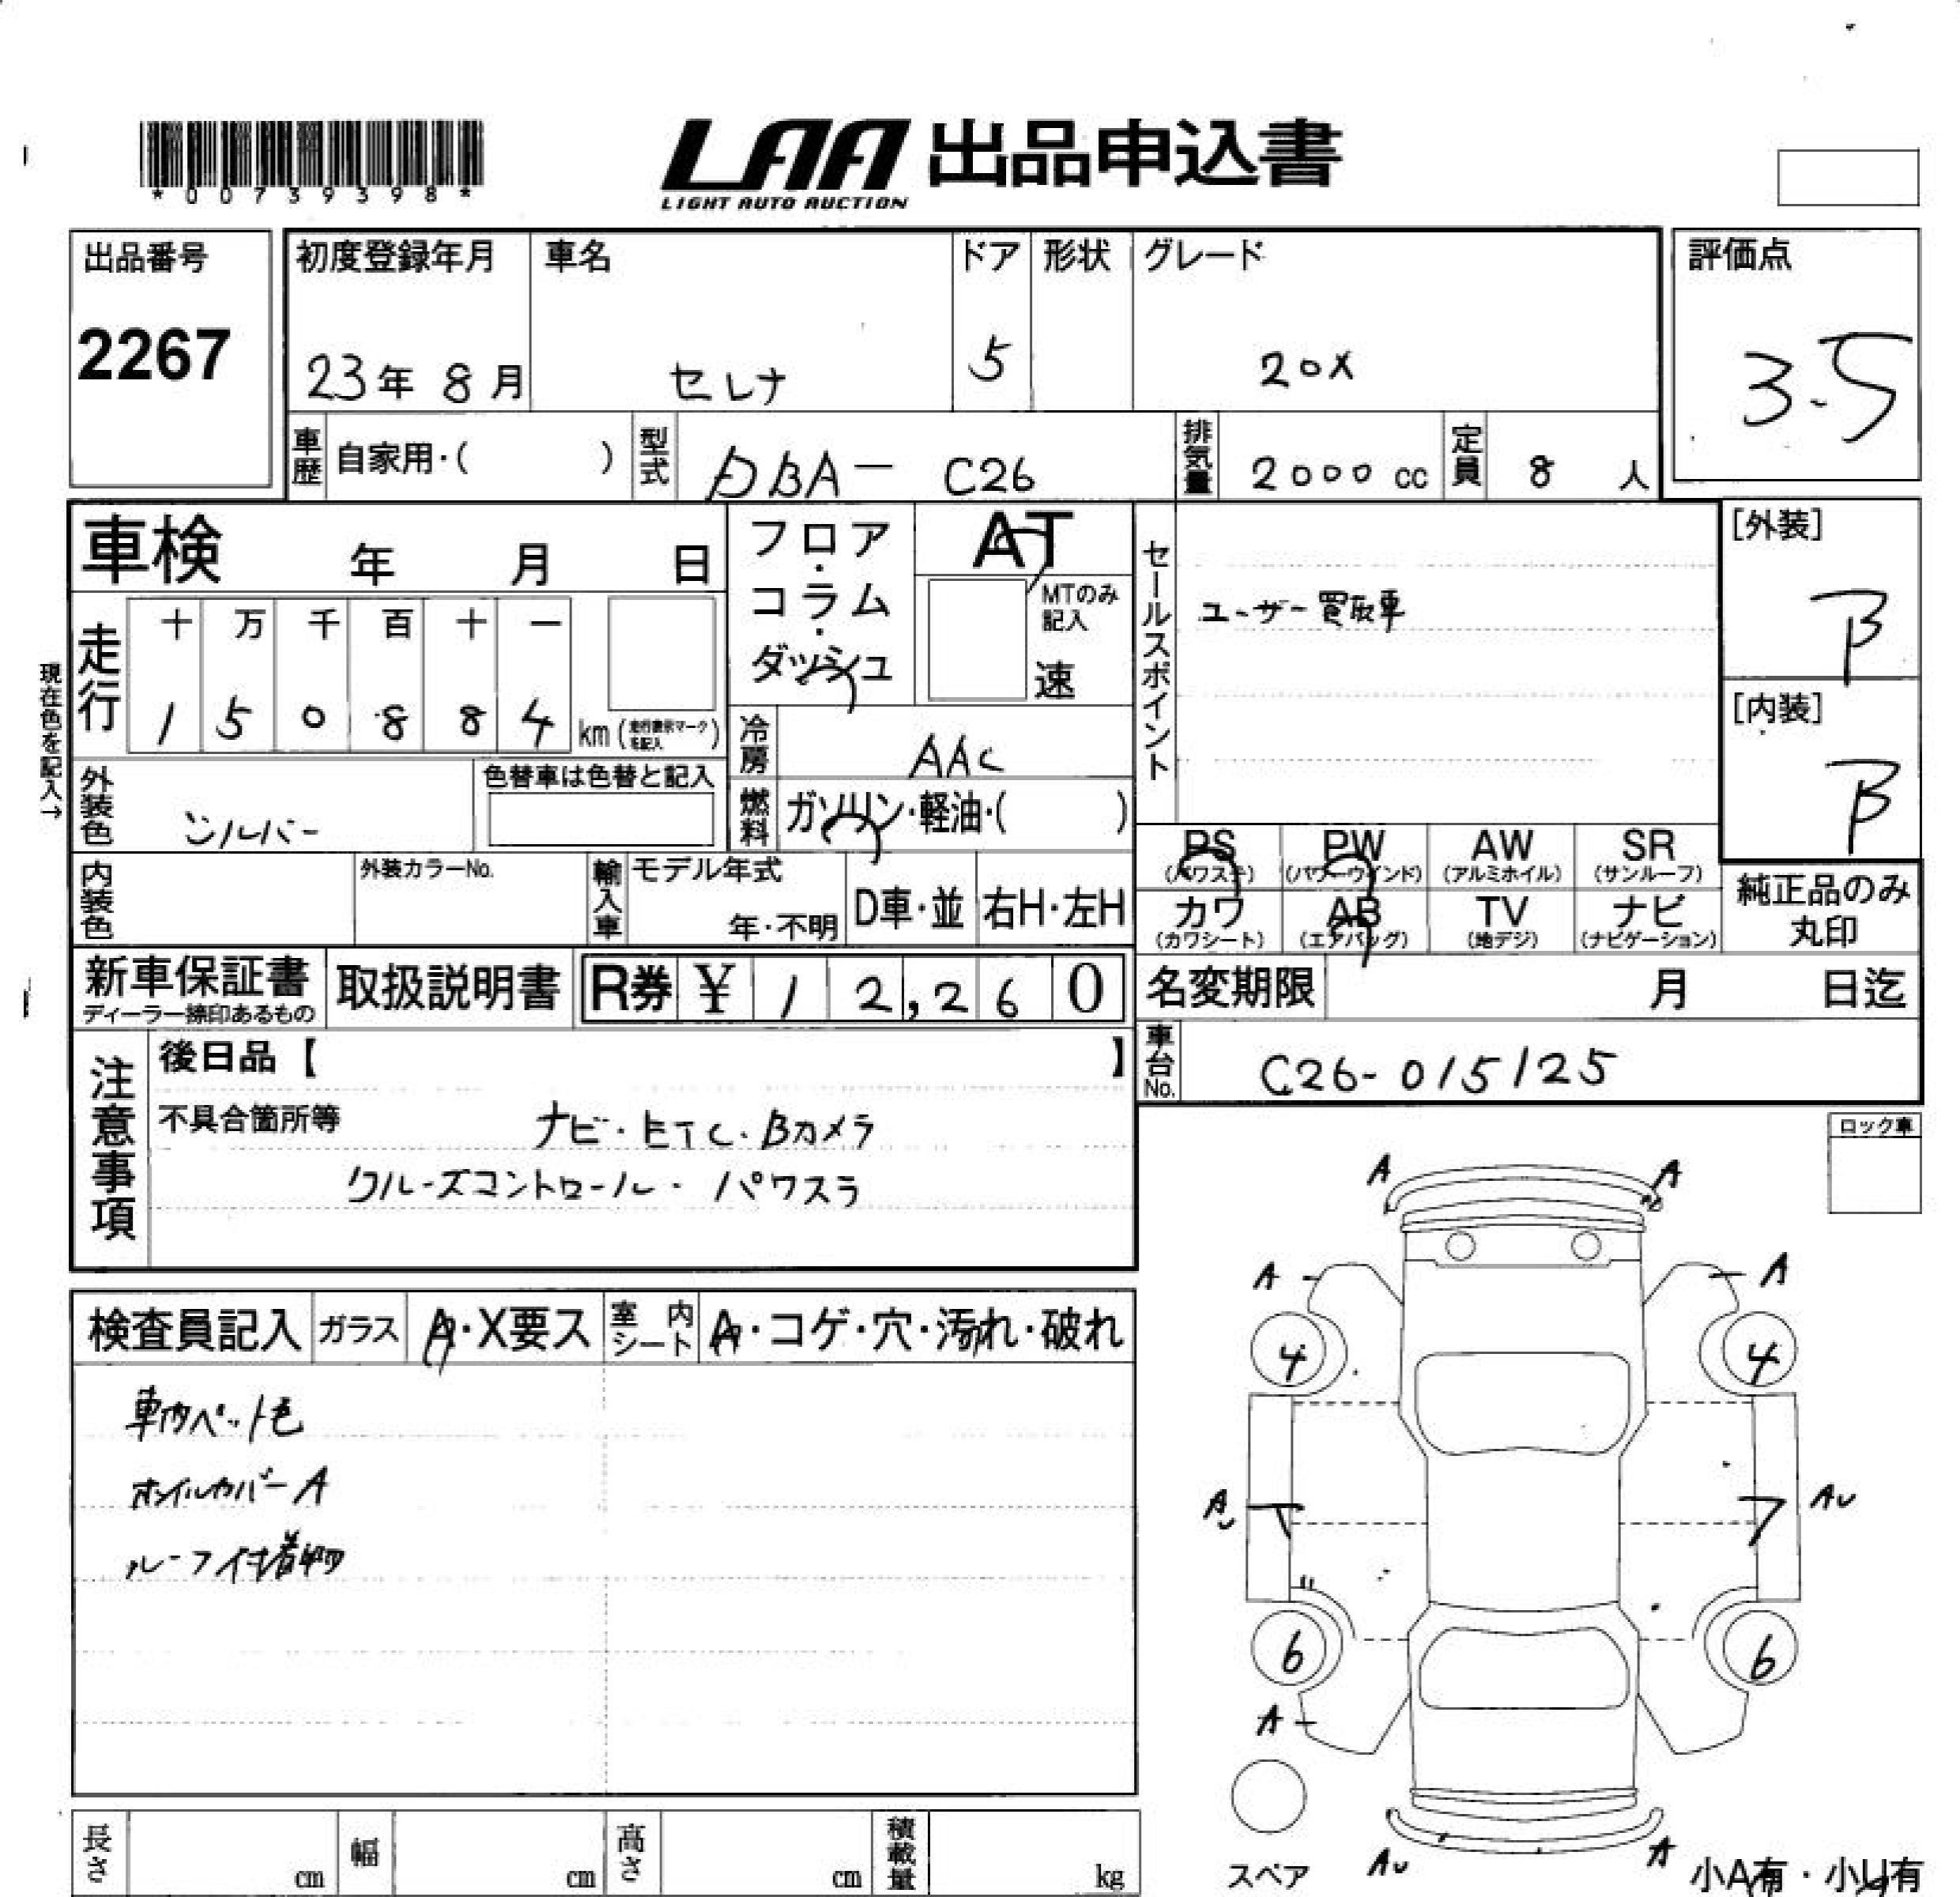 *00739398*
LAA 出品申込書
LIGHT AUTO AUCTION
出品番号
2267
初度登録年月
23年 8月
車名
セレナ
ドア
5
形状
グレード
20X
評価点
3.5
車歴 自家用・( )
型式 DBA- C26
排気量 2000 cc
定員 8 人
車検 年 月 日
現在色を記入→
走行
十 万 千 百 十 一
1 5 0 8 8 4 km
フロア・コラム・ダッシュ
AT
MTのみ記入
速
セールスポイント
ユーザー買取車
[外装]
B
[内装]
B
冷房 AAC
外装色 シルバー
色替車は色替と記入
燃料 ガソリン・軽油・( )
内装色
外装カラーNo.
輸入車 モデル年式
年・不明
D車・並
右H・左H
PS PW AW SR
(パワステ) (パワーウインド) (アルミホイル) (サンルーフ)
カワ AB TV ナビ
(カワシート) (エアバッグ) (地デジ) (ナビゲーション)
純正品のみ
丸印
新車保証書
ディーラー捺印あるもの
取扱説明書
R券 ¥ 12,260
名変期限 月 日迄
車台No. C26-015125
注意事項
後日品【 】
不具合箇所等 ナビ・ETC・Bカメラ
クルーズコントロール・パワスラ
ロック車
検査員記入 ガラス A・X要ス 室内シート A・コゲ・穴・汚れ・破れ
車内ペット毛
ホイルカバーA
ルーフ付着物
A A
A A
4 4
AU AU
6 6
A
スペア
AU A
小A有・小U有
長さ cm 幅 cm 高さ cm 積載量 kg